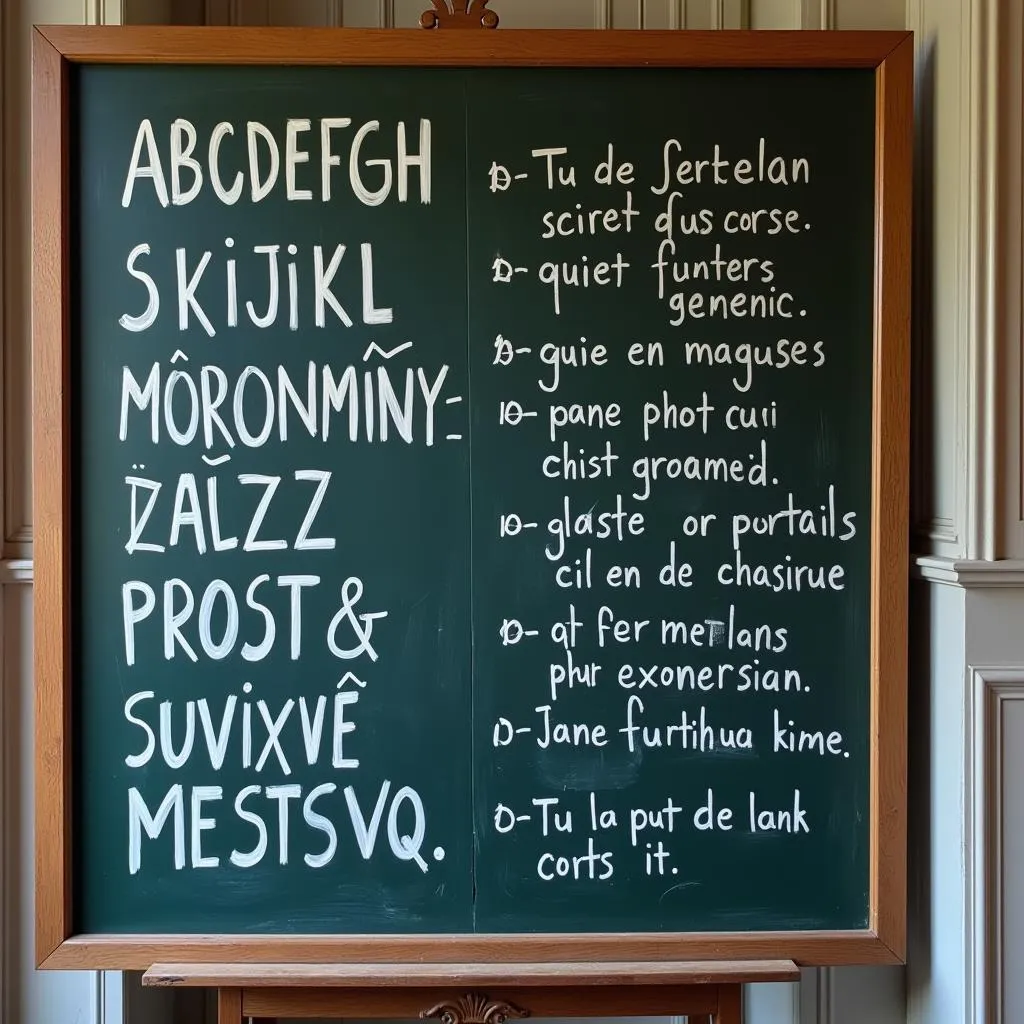 ABCDEFGH
SKIJIKL
MÔRONMÍÑY=
ZALZZ
PROST &
SUVIXVÊ
MESTSVQ.
D- Tu de Sertelan
sciret dus corse.
D- quiet funters
genenic.
D- guie en maguses
10- pane phot cuii
chist groamed.
10- glaste or portails
cil en de chasirue
D- at fer metlans
phr exonersian.
D- Jane furtihua kime.
D- Tu la put de lank
corts it.